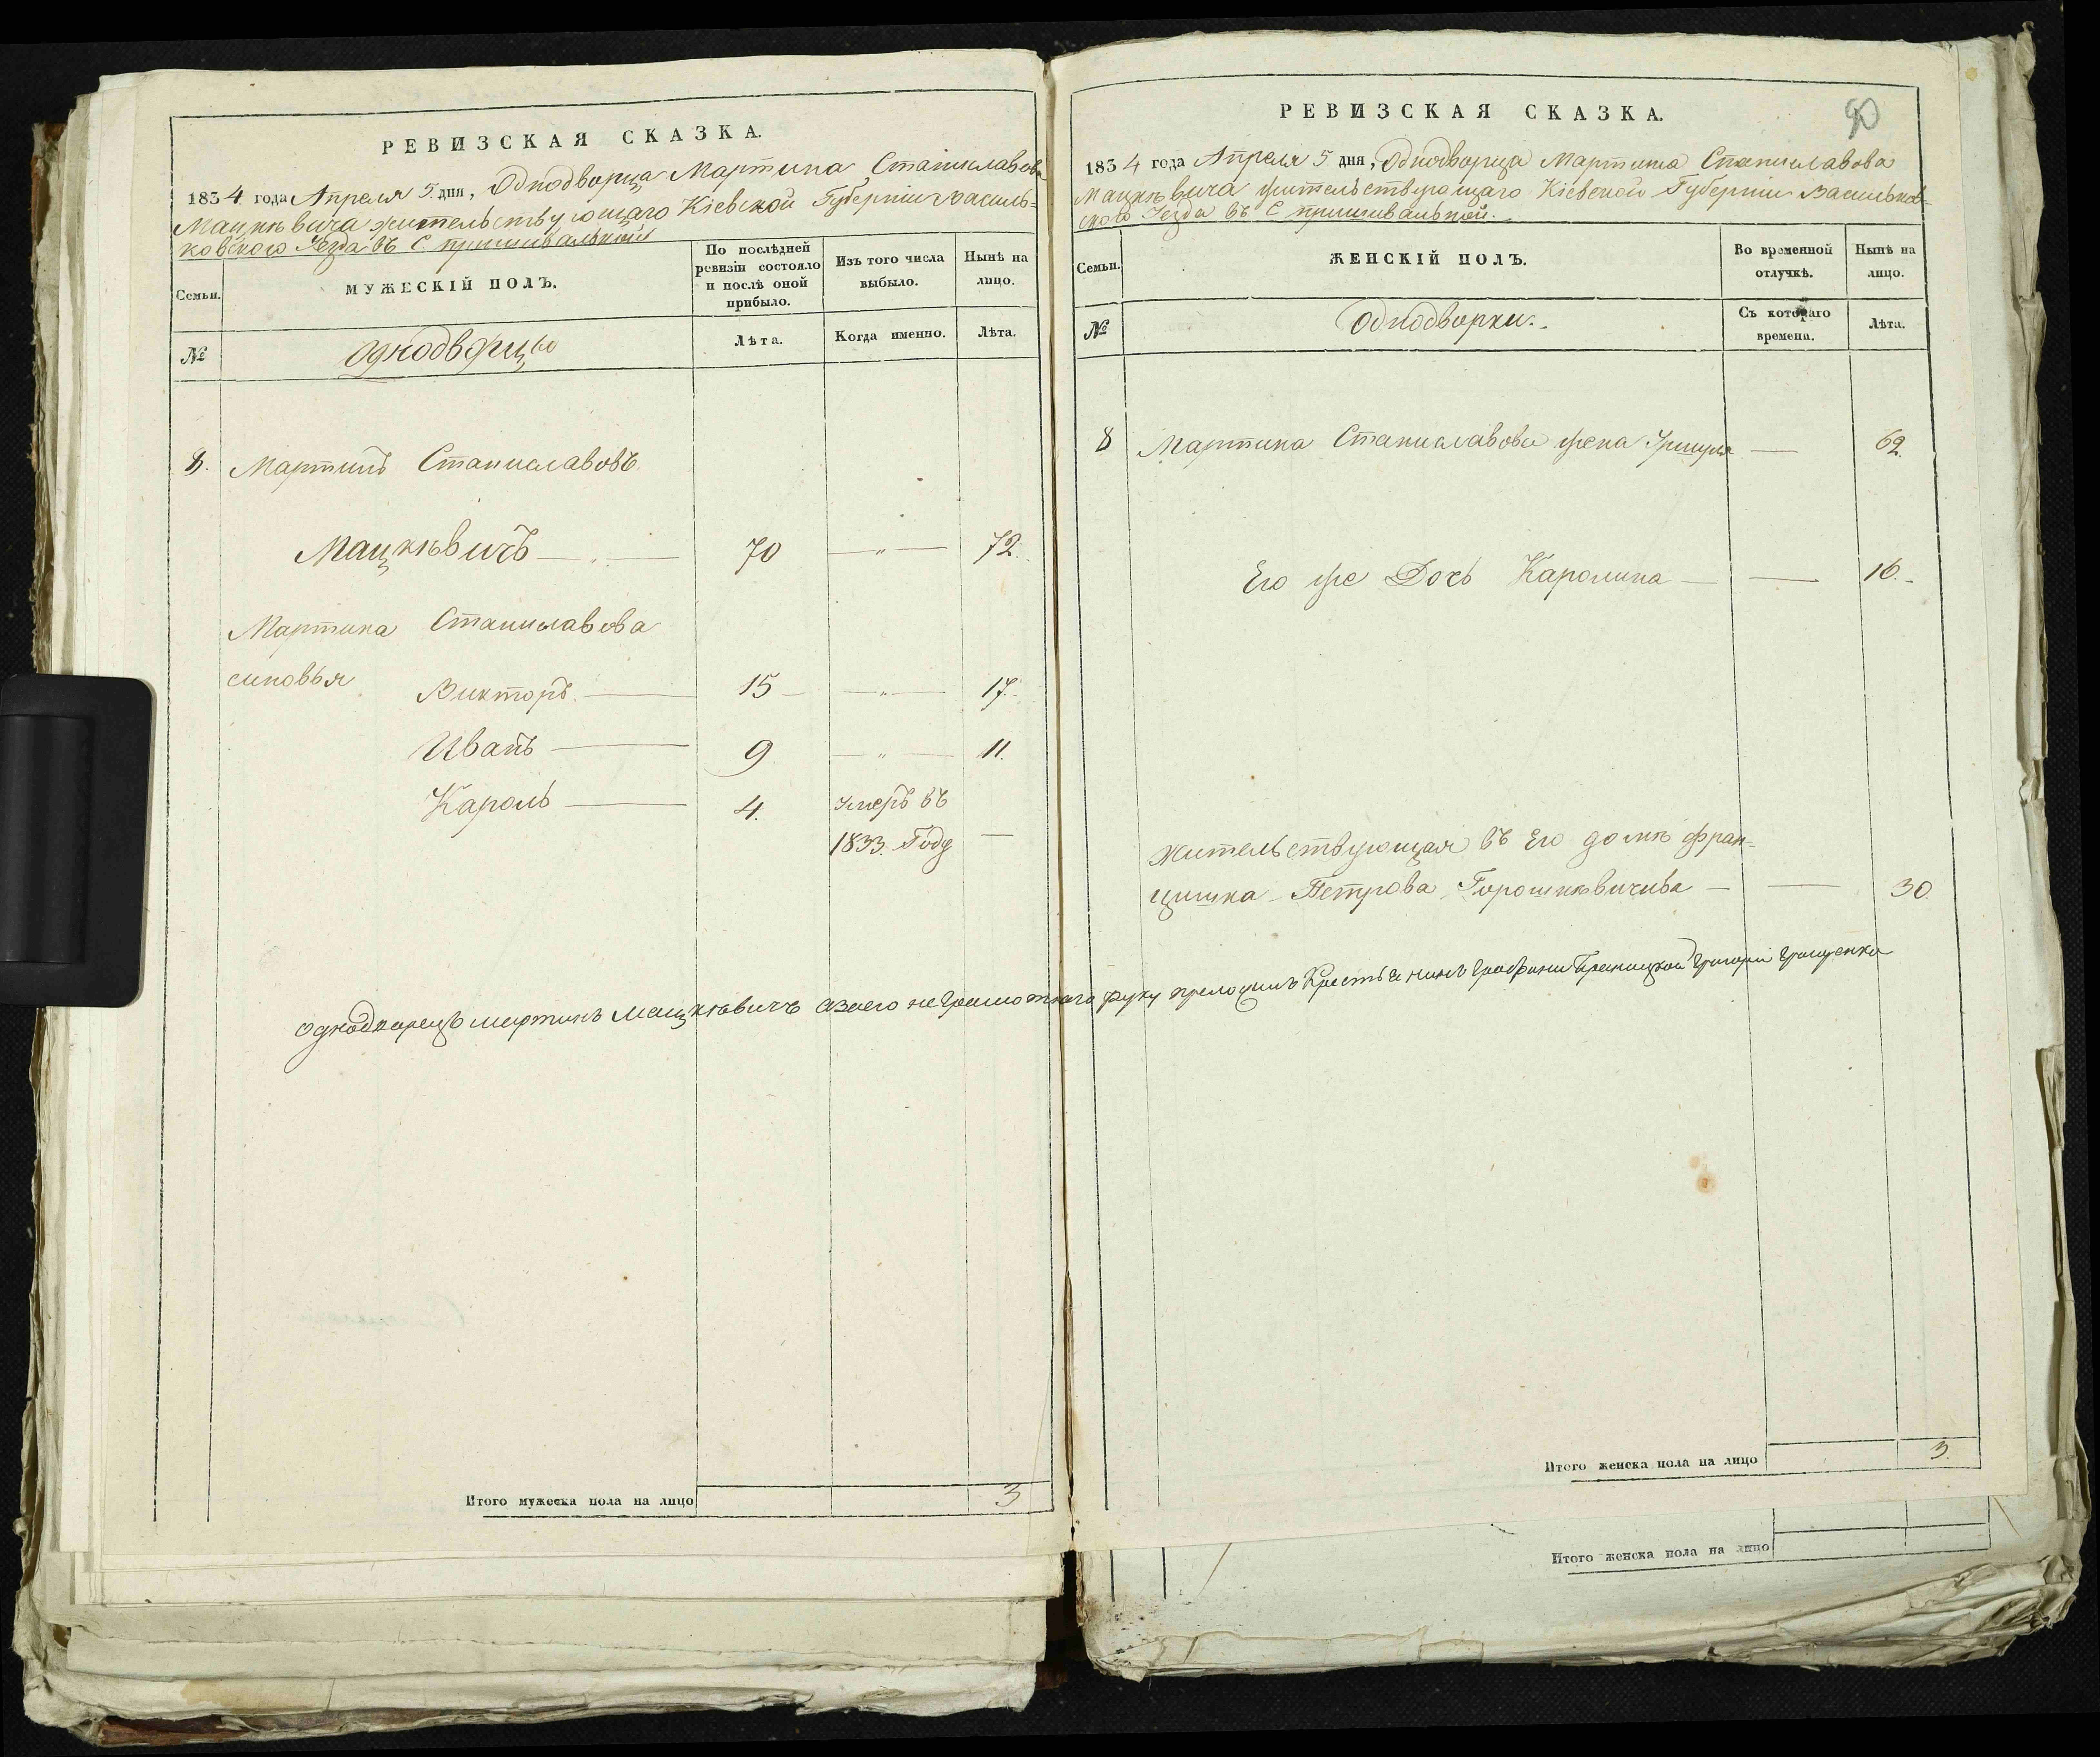 РЕВИЗСКАЯ СКАЗКА.
1834 года Апреля 5 дня, Однодворца Мартина Станиславова
Мацкѣвича жительствующаго Кіевской Губерніи Василь=
ковского Уезда въ С. пришивальной
Семьи.
МУЖЕСКІЙ ПОЛЪ.
По послѣдней ревизіи состояло и послѣ оной прибыло.
Изъ того числа выбыло.
Нынѣ на лицо.
№
однодворцы
Лѣта.
Когда именно.
Лѣта.
8. Мартинъ Станиславовъ
Мацкѣвичъ — 70 — " — 72.
Мартина Станиславова
сыновья Викторъ — 15 — " — 17.
Иванъ — 9 — " — 11.
Кароль — 4. умеръ въ
1833. Году —
Итого мужеска пола на лицо 3
РЕВИЗСКАЯ СКАЗКА.
90
1834 года Апреля 5 дня, Однодворца Мартина Станиславова
Мацкѣвича жительствующаго Кіевской Губерніи Васильков-
ского Уезда въ С пришивальной.
Семьи.
ЖЕНСКІЙ ПОЛЪ.
Во временной отлучкѣ.
Нынѣ на лицо.
№
Однодворки.
Съ котораго времени.
Лѣта.
8 Мартина Станиславова жена Уршуля — 62.
Его же Дочь Каролина — — 16.
Жительствующая въ Его домѣ Фран=
цишка Петрова Горошкѣвичива — — 30.
однодворецъ мартинъ Мацкѣвичъ азаего неграмотнаго руку преложилъ Крестьянинъ Графини Браницкой Григорій Грищенко
Итого женска пола на лицо 3.
Итого женска пола на лицо